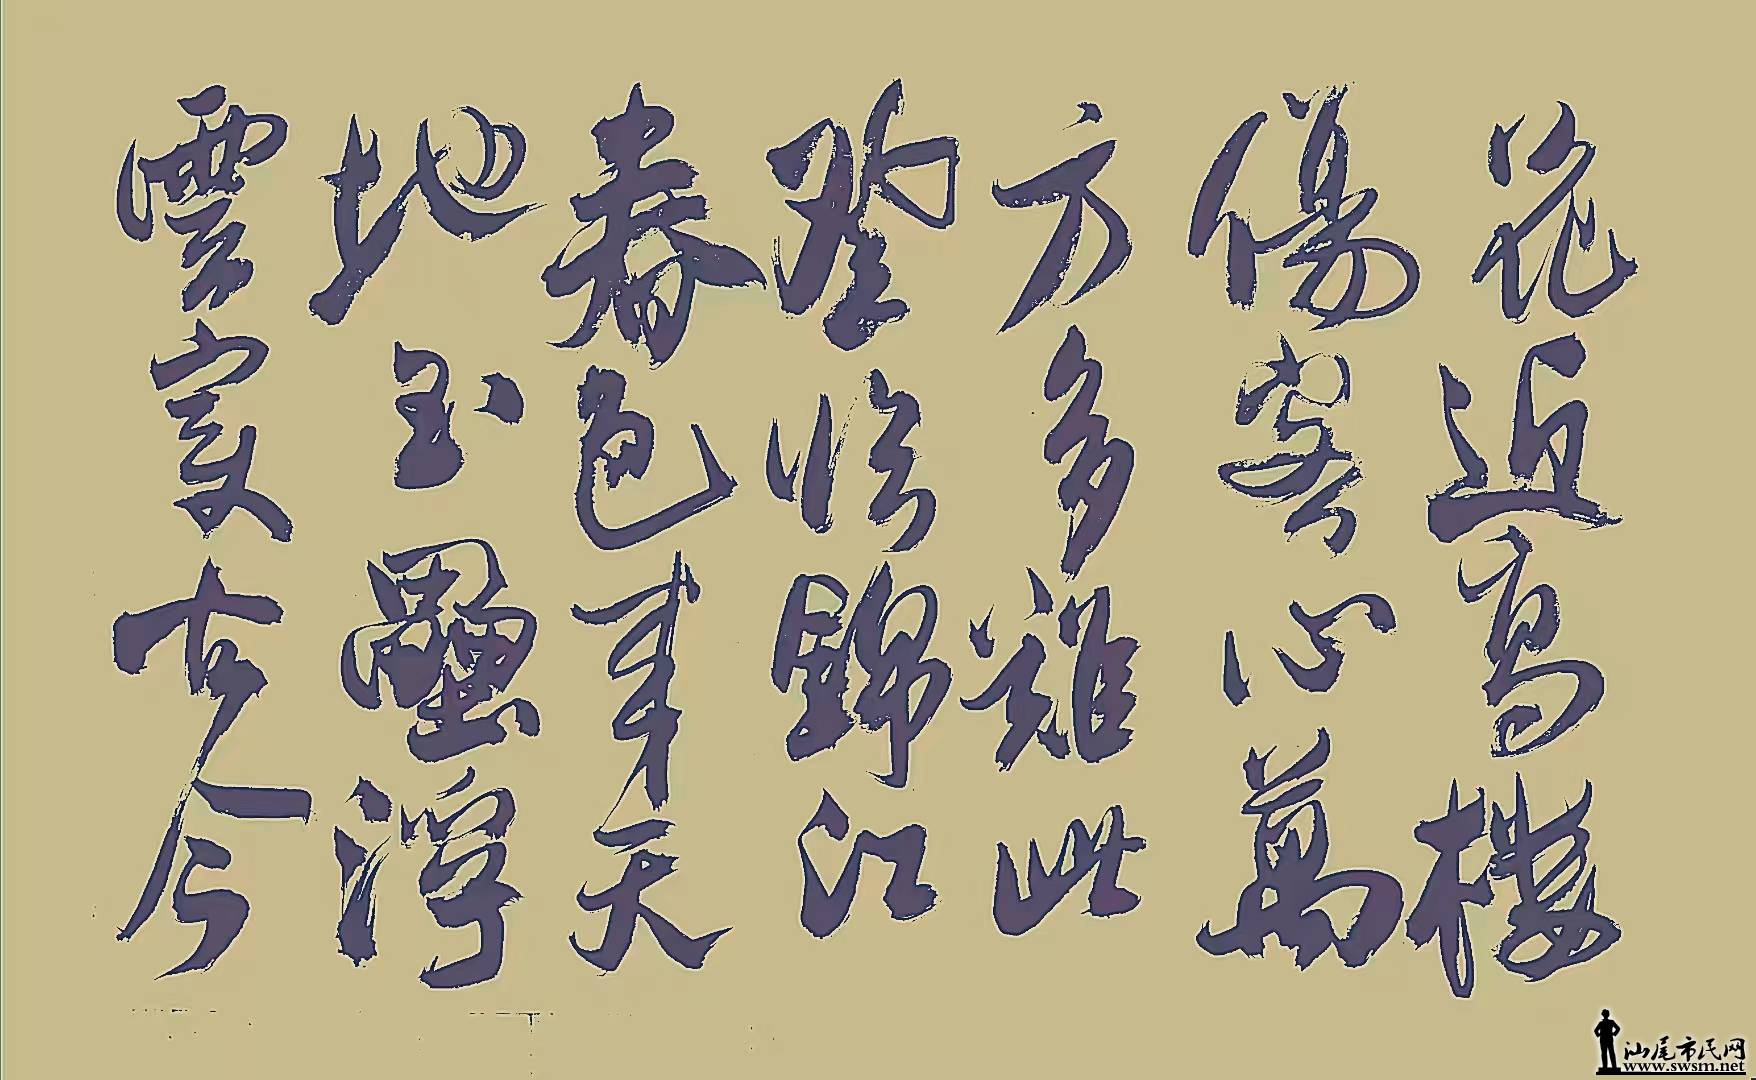 花近高樓
傷客心萬
方多難此
登臨錦江
春色來天
地玉壘浮
雲變古今
汕尾市民网
www.swsm.net